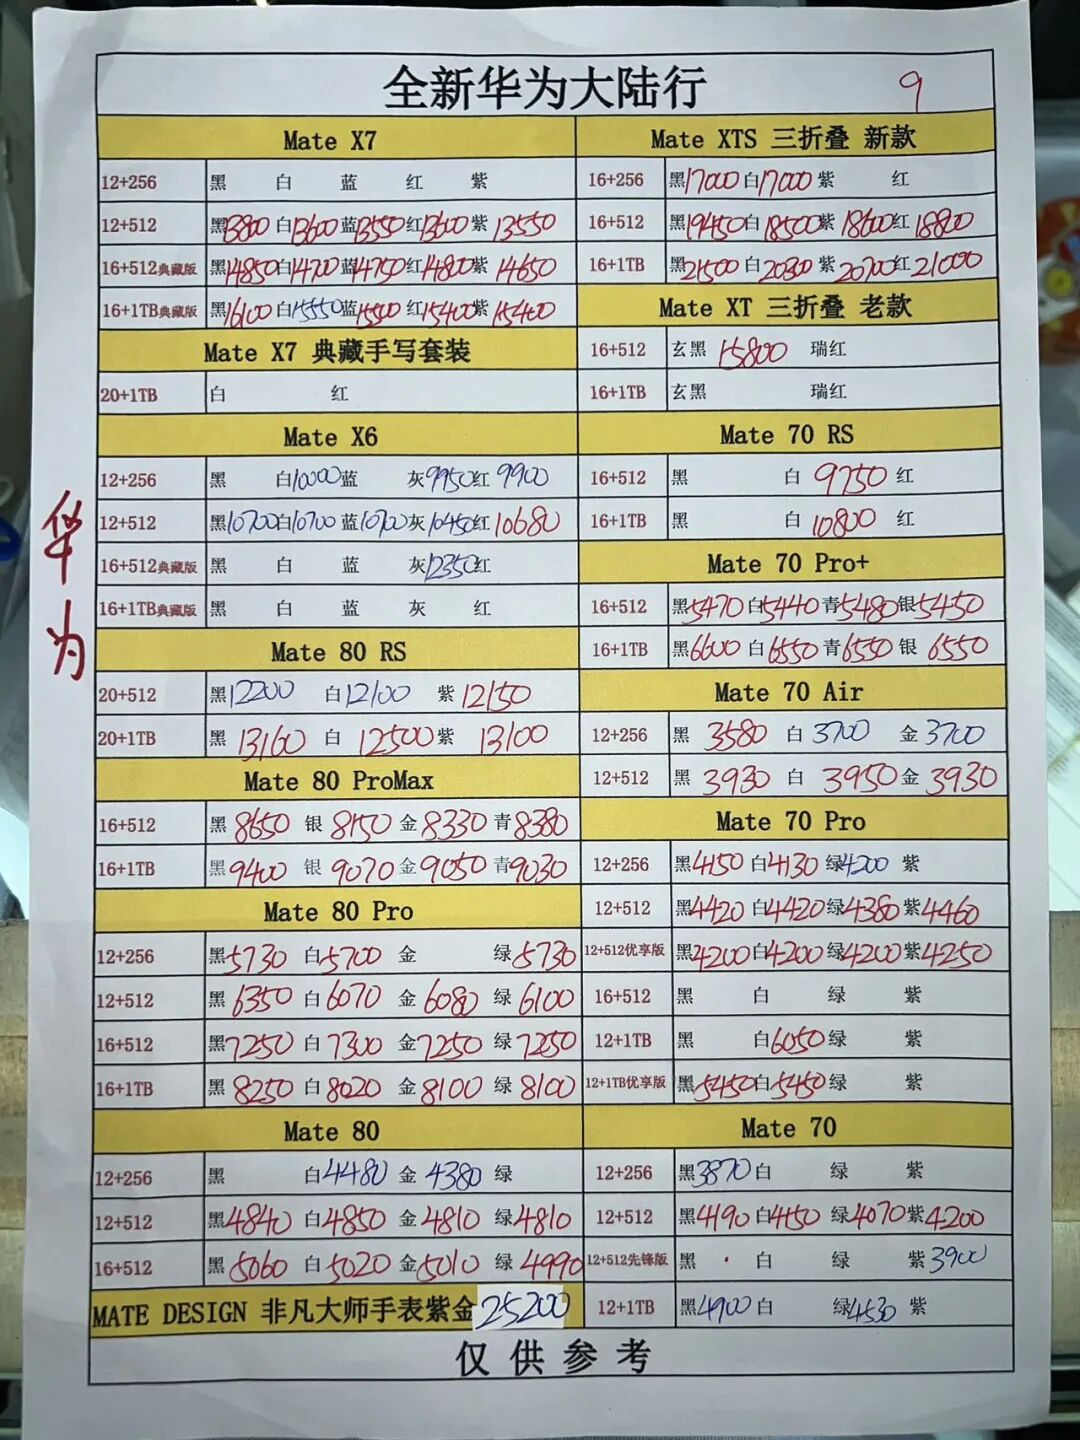 全新华为大陆行 9
华为
Mate X7
12+256 黑 白 蓝 红 紫
12+512 黑13800 白13600 蓝13550 红13600 紫13550
16+512典藏版 黑14850 白14700 蓝14750 红14800 紫14650
16+1TB典藏版 黑16100 白15550 蓝15500 红15400 紫15400
Mate X7 典藏手写套装
20+1TB 白 红
Mate X6
12+256 黑 白10000 蓝 灰9950 红9900
12+512 黑10700 白10700 蓝10700 灰10450 红10680
16+512典藏版 黑 白 蓝 灰12350 红
16+1TB典藏版 黑 白 蓝 灰 红
Mate 80 RS
20+512 黑12200 白12100 紫12150
20+1TB 黑13160 白12500 紫13100
Mate 80 ProMax
16+512 黑8650 银8150 金8330 青8380
16+1TB 黑9400 银9070 金9050 青9030
Mate 80 Pro
12+256 黑5730 白5700 金 绿5730
12+512 黑6350 白6070 金6080 绿6100
16+512 黑7250 白7300 金7250 绿7250
16+1TB 黑8250 白8020 金8100 绿8100
Mate 80
12+256 黑 白4480 金4380 绿
12+512 黑4840 白4850 金4810 绿4810
16+512 黑5060 白5020 金5010 绿4990
MATE DESIGN 非凡大师手表紫金25200
Mate XTS 三折叠 新款
16+256 黑17000 白17000 紫 红
16+512 黑19450 白18500 紫18600 红18800
16+1TB 黑21500 白20300 紫20700 红21000
Mate XT 三折叠 老款
16+512 玄黑15800 瑞红
16+1TB 玄黑 瑞红
Mate 70 RS
16+512 黑 白9750 红
16+1TB 黑 白10800 红
Mate 70 Pro+
16+512 黑5470 白5440 青5480 银5450
16+1TB 黑6600 白6550 青6550 银6550
Mate 70 Air
12+256 黑3580 白3700 金3700
12+512 黑3930 白3950 金3930
Mate 70 Pro
12+256 黑4150 白4130 绿4200 紫
12+512 黑4420 白4420 绿4380 紫4460
12+512优享版 黑4200 白4200 绿4200 紫4250
16+512 黑 白 绿 紫
12+1TB 黑 白6050 绿 紫
12+1TB优享版 黑5450 白5450 绿 紫
Mate 70
12+256 黑3870 白 绿 紫
12+512 黑4190 白4150 绿4070 紫4200
12+512先锋版 黑 白 绿 紫3900
12+1TB 黑4900 白 绿4530 紫
仅供参考